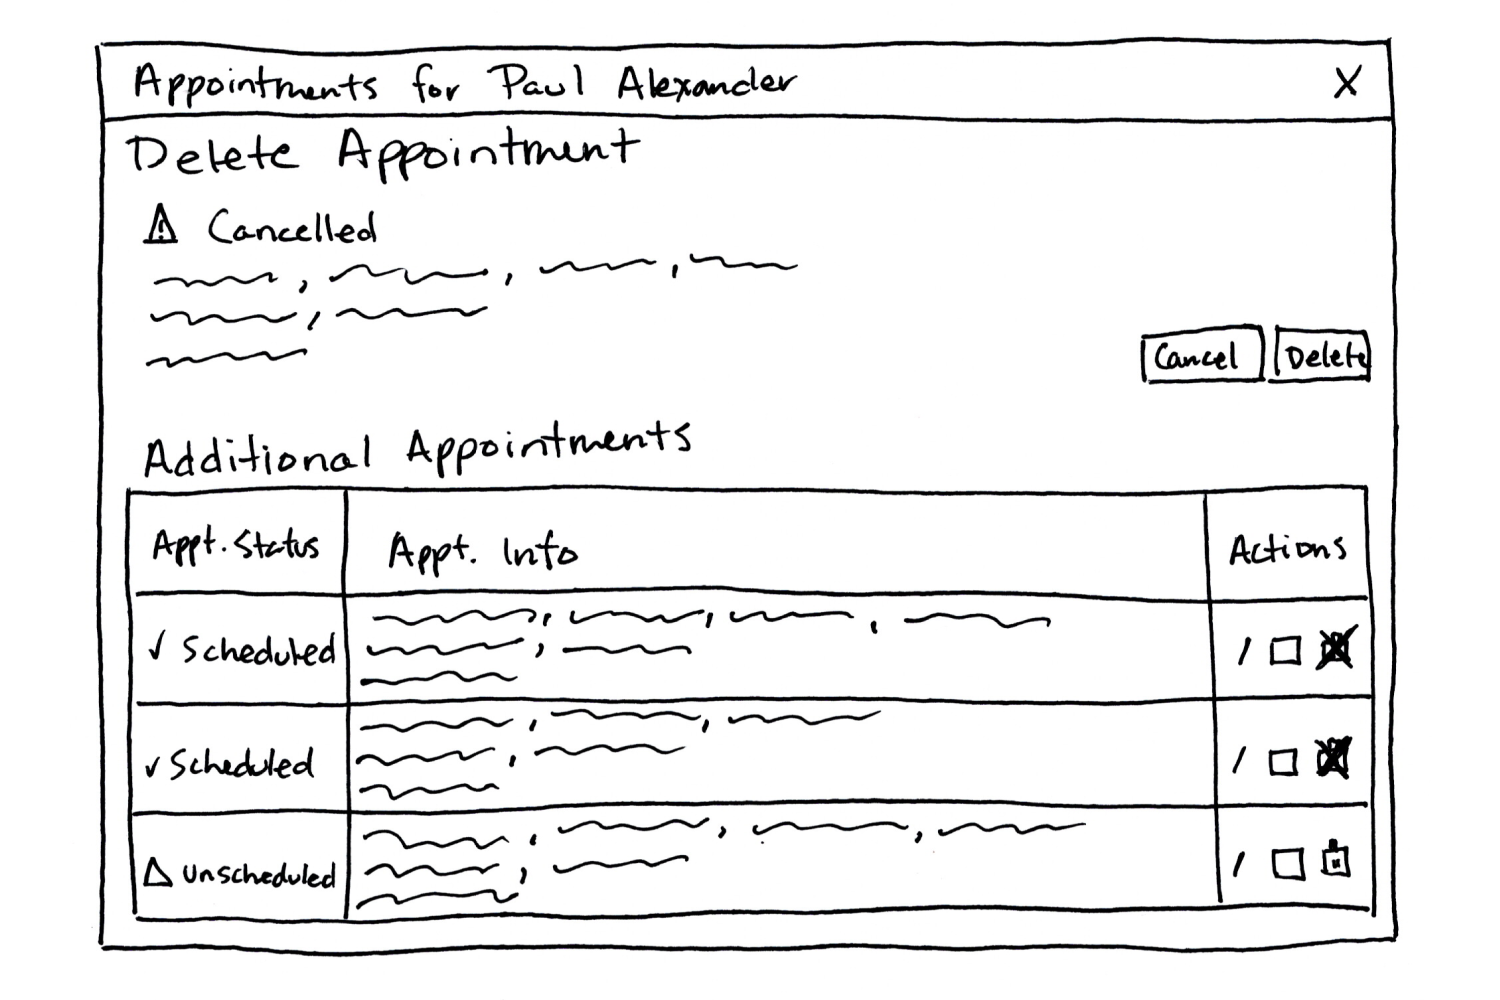 Appointments for Paul Alexander X
Delete Appointment
Cancelled
Cancel Delete
Additional Appointments
Appt. Status Appt. Info Actions
✓ Scheduled
✓ Scheduled
Unscheduled